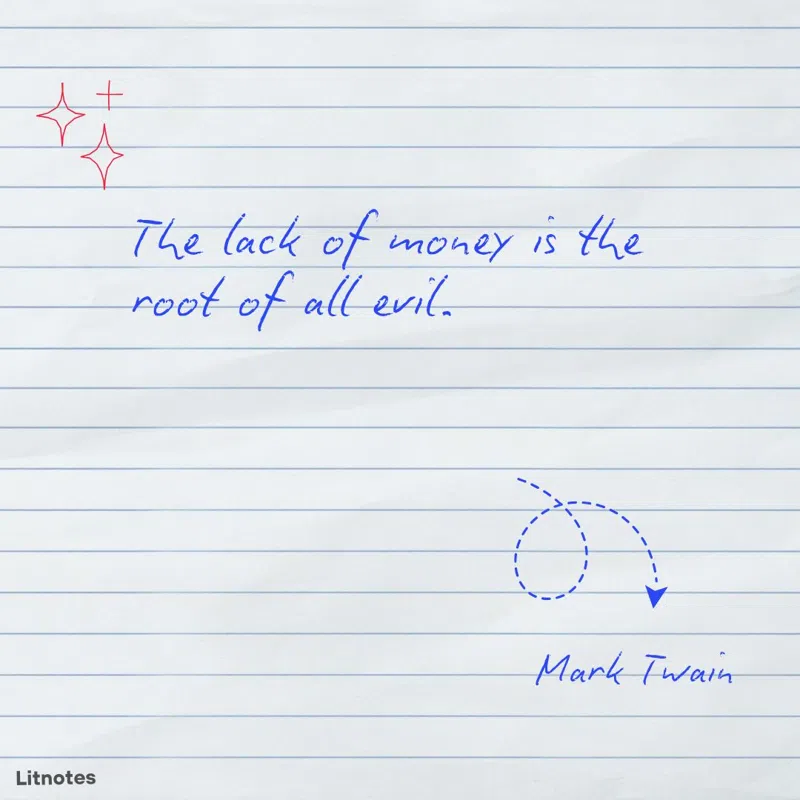 The lack of money is the
root of all evil.
Mark Twain
Litnotes